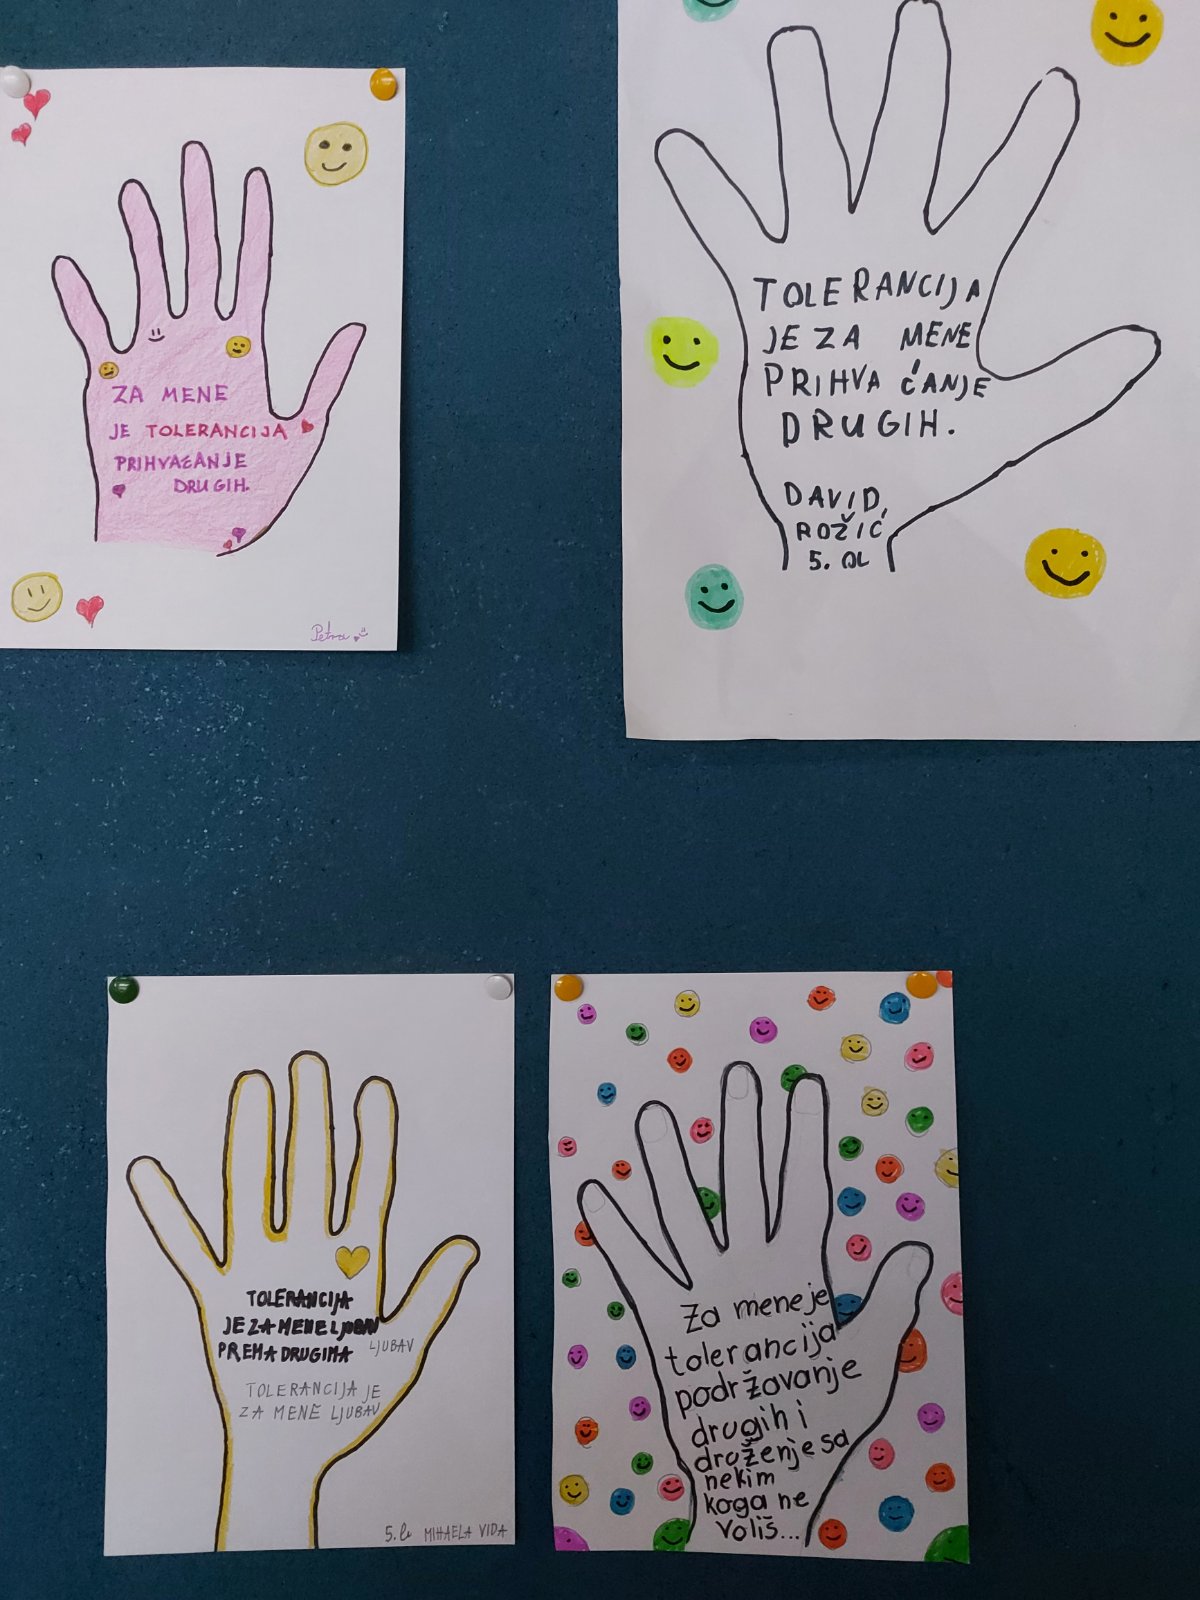 ZA MENE
JE TOLERANCIJA
PRIHVAĆANJE
DRUGIH.
Petra
TOLERANCIJA
JE ZA MENE
PRIHVAĆANJE
DRUGIH.
DAVID,
ROŽIĆ
5.
TOLERANCIJA
JE ZA MENE LJUBAV
PREMA DRUGIMA
LJUBAV
TOLERANCIJA JE
ZA MENE LJUBAV
5. MIHAELA VIDA
Za mene je
tolerancija
podržavanje
drugih i
druženje sa
nekim
koga ne
voliš...